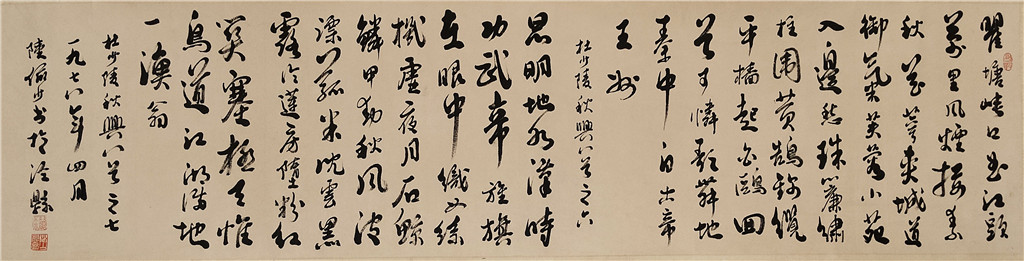 瞿塘峽口曲江頭
萬里風煙接素
秋花萼夾城通
御氣芙蓉小苑
入邊愁珠簾繡
柱圍黃鵠錦纜
牙檣起白鷗回
首可憐歌舞地
秦中自古帝
王州
杜少陵秋興八首之六
昆明池水漢時
功武帝旌旗
在眼中織女絲
機虛夜月石鯨
鱗甲動秋風波
漂菰米沈雲黑
露冷蓮房墜粉紅
關塞極天惟
鳥道江湖滿地
一漁翁
杜少陵秋興八首之七
一九七八年四月
陸儼少書於涇縣